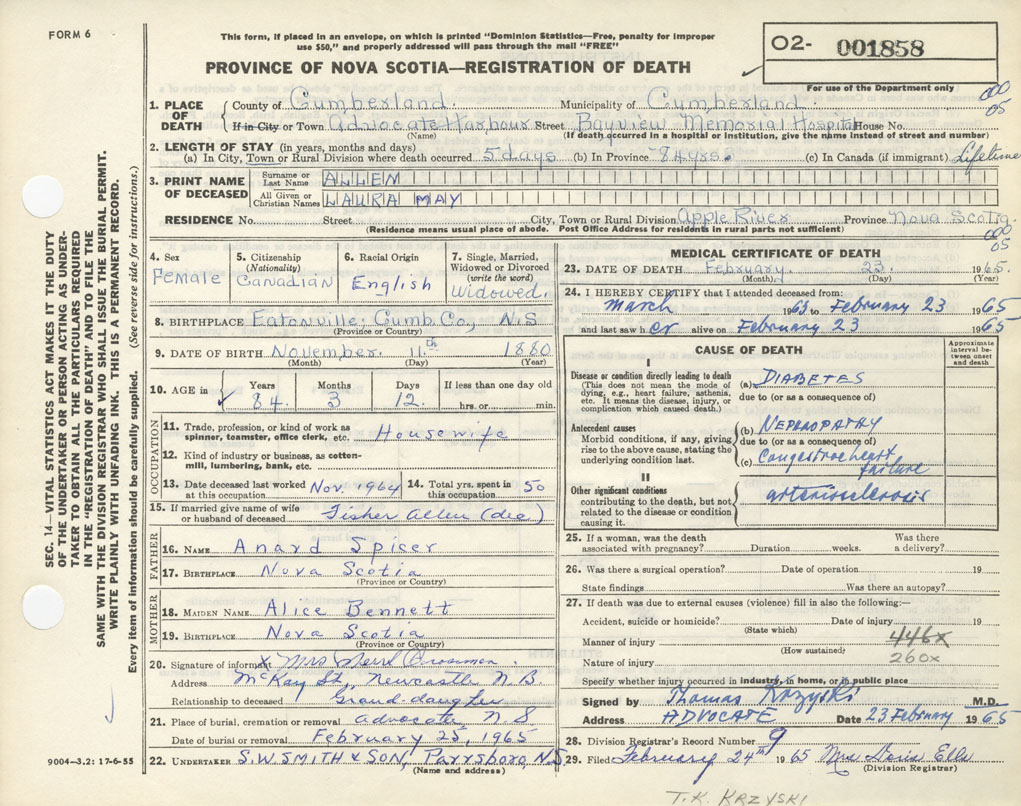 FORM 6
This form, if placed in an envelope, on which is printed "Dominion Statistics—Free, penalty for improper
use $50," and properly addressed will pass through the mail "FREE"
PROVINCE OF NOVA SCOTIA—REGISTRATION OF DEATH
O2- 001858
For use of the Department only
000
05
1. PLACE OF DEATH
County of Cumberland. Municipality of Cumberland.
If in City or Town Advocate Harbour Street Bayview Memorial Hospital House No.
(Name) (If death occurred in a hospital or institution, give the name instead of street and number)
2. LENGTH OF STAY (in years, months and days)
(a) In City, Town or Rural Division where death occurred 5 days (b) In Province 84 yrs. (c) In Canada (if immigrant) Lifetime
3. PRINT NAME OF DECEASED
Surname or Last Name ALLEN
All Given or Christian Names LAURA MAY
RESIDENCE No. Street City, Town or Rural Division Apple River Province Nova Scotia.
(Residence means usual place of abode. Post Office Address for residents in rural parts not sufficient)
000
05
4. Sex
Female
5. Citizenship
(Nationality)
Canadian
6. Racial Origin
English
7. Single, Married,
Widowed or Divorced
(write the word)
Widowed.
8. BIRTHPLACE Eatonville; Cumb. Co., N.S
(Province or Country)
9. DATE OF BIRTH November. 11th 1880
(Month) (Day) (Year)
10. AGE in
Years Months Days If less than one day old
84. 3 12. hrs. or min.
OCCUPATION
11. Trade, profession, or kind of work as
spinner, teamster, office clerk, etc. Housewife
12. Kind of industry or business, as cotton-
mill, lumbering, bank, etc.
13. Date deceased last worked
at this occupation Nov. 1964
14. Total yrs. spent in
this occupation 50
15. If married give name of wife
or husband of deceased Fisher Allen (dec)
FATHER
16. NAME Anard Spicer
17. BIRTHPLACE Nova Scotia
(Province or Country)
MOTHER
18. MAIDEN NAME Alice Bennett
19. BIRTHPLACE Nova Scotia
(Province or Country)
20. Signature of informant X Mrs
Address McKay St, Newcastle N.B.
Relationship to deceased Grand-daughter
21. Place of burial, cremation or removal Advocate, N.S
Date of burial or removal February 25, 1965
22. UNDERTAKER S.W. SMITH & SON, Parrsboro, N.S.
(Name and address)
MEDICAL CERTIFICATE OF DEATH
23. DATE OF DEATH February. 23. 1965.
(Month) (Day) (Year)
24. I HEREBY CERTIFY that I attended deceased from:
March 1963 to February 23 1965
and last saw her alive on February 23 1965
CAUSE OF DEATH
Approximate
interval be-
tween onset
and death
I
Disease or condition directly leading to death
(This does not mean the mode of
dying, e.g., heart failure, asthenia,
etc. It means the disease, injury, or
complication which caused death.)
(a) DIABETES
due to (or as a consequence of)
Antecedent causes
Morbid conditions, if any, giving
rise to the above cause, stating the
underlying condition last.
(b) NEPHROPATHY
due to (or as a consequence of)
(c) Congestive heart
failure
II
Other significant conditions
contributing to the death, but not
related to the disease or condition
causing it.
arteriosclerosis
25. If a woman, was the death Was there
associated with pregnancy? Duration weeks. a delivery?
26. Was there a surgical operation? Date of operation 19
State findings Was there an autopsy?
27. If death was due to external causes (violence) fill in also the following:—
Accident, suicide or homicide? Date of injury 19
(State which)
Manner of injury 446x
(How sustained)
Nature of injury 260x
Specify whether injury occurred in industry, in home, or in public place
Signed by Thomas Krzyski M.D.
Address ADVOCATE Date 23 February 1965
28. Division Registrar's Record Number 9
29. Filed February 24th 1965 Mrs Doris Ells
(Division Registrar)
T.K. KRZYSKI
SEC. 14—VITAL STATISTICS ACT MAKES IT THE DUTY
OF THE UNDERTAKER OR PERSON ACTING AS UNDER-
TAKER TO OBTAIN ALL THE PARTICULARS REQUIRED
IN THE "REGISTRATION OF DEATH" AND TO FILE THE
SAME WITH THE DIVISION REGISTRAR WHO SHALL ISSUE THE BURIAL PERMIT.
WRITE PLAINLY WITH UNFADING INK. THIS IS A PERMANENT RECORD.
Every item of information should be carefully supplied. (See reverse side for instructions.)
9004—3.2: 17-6-55